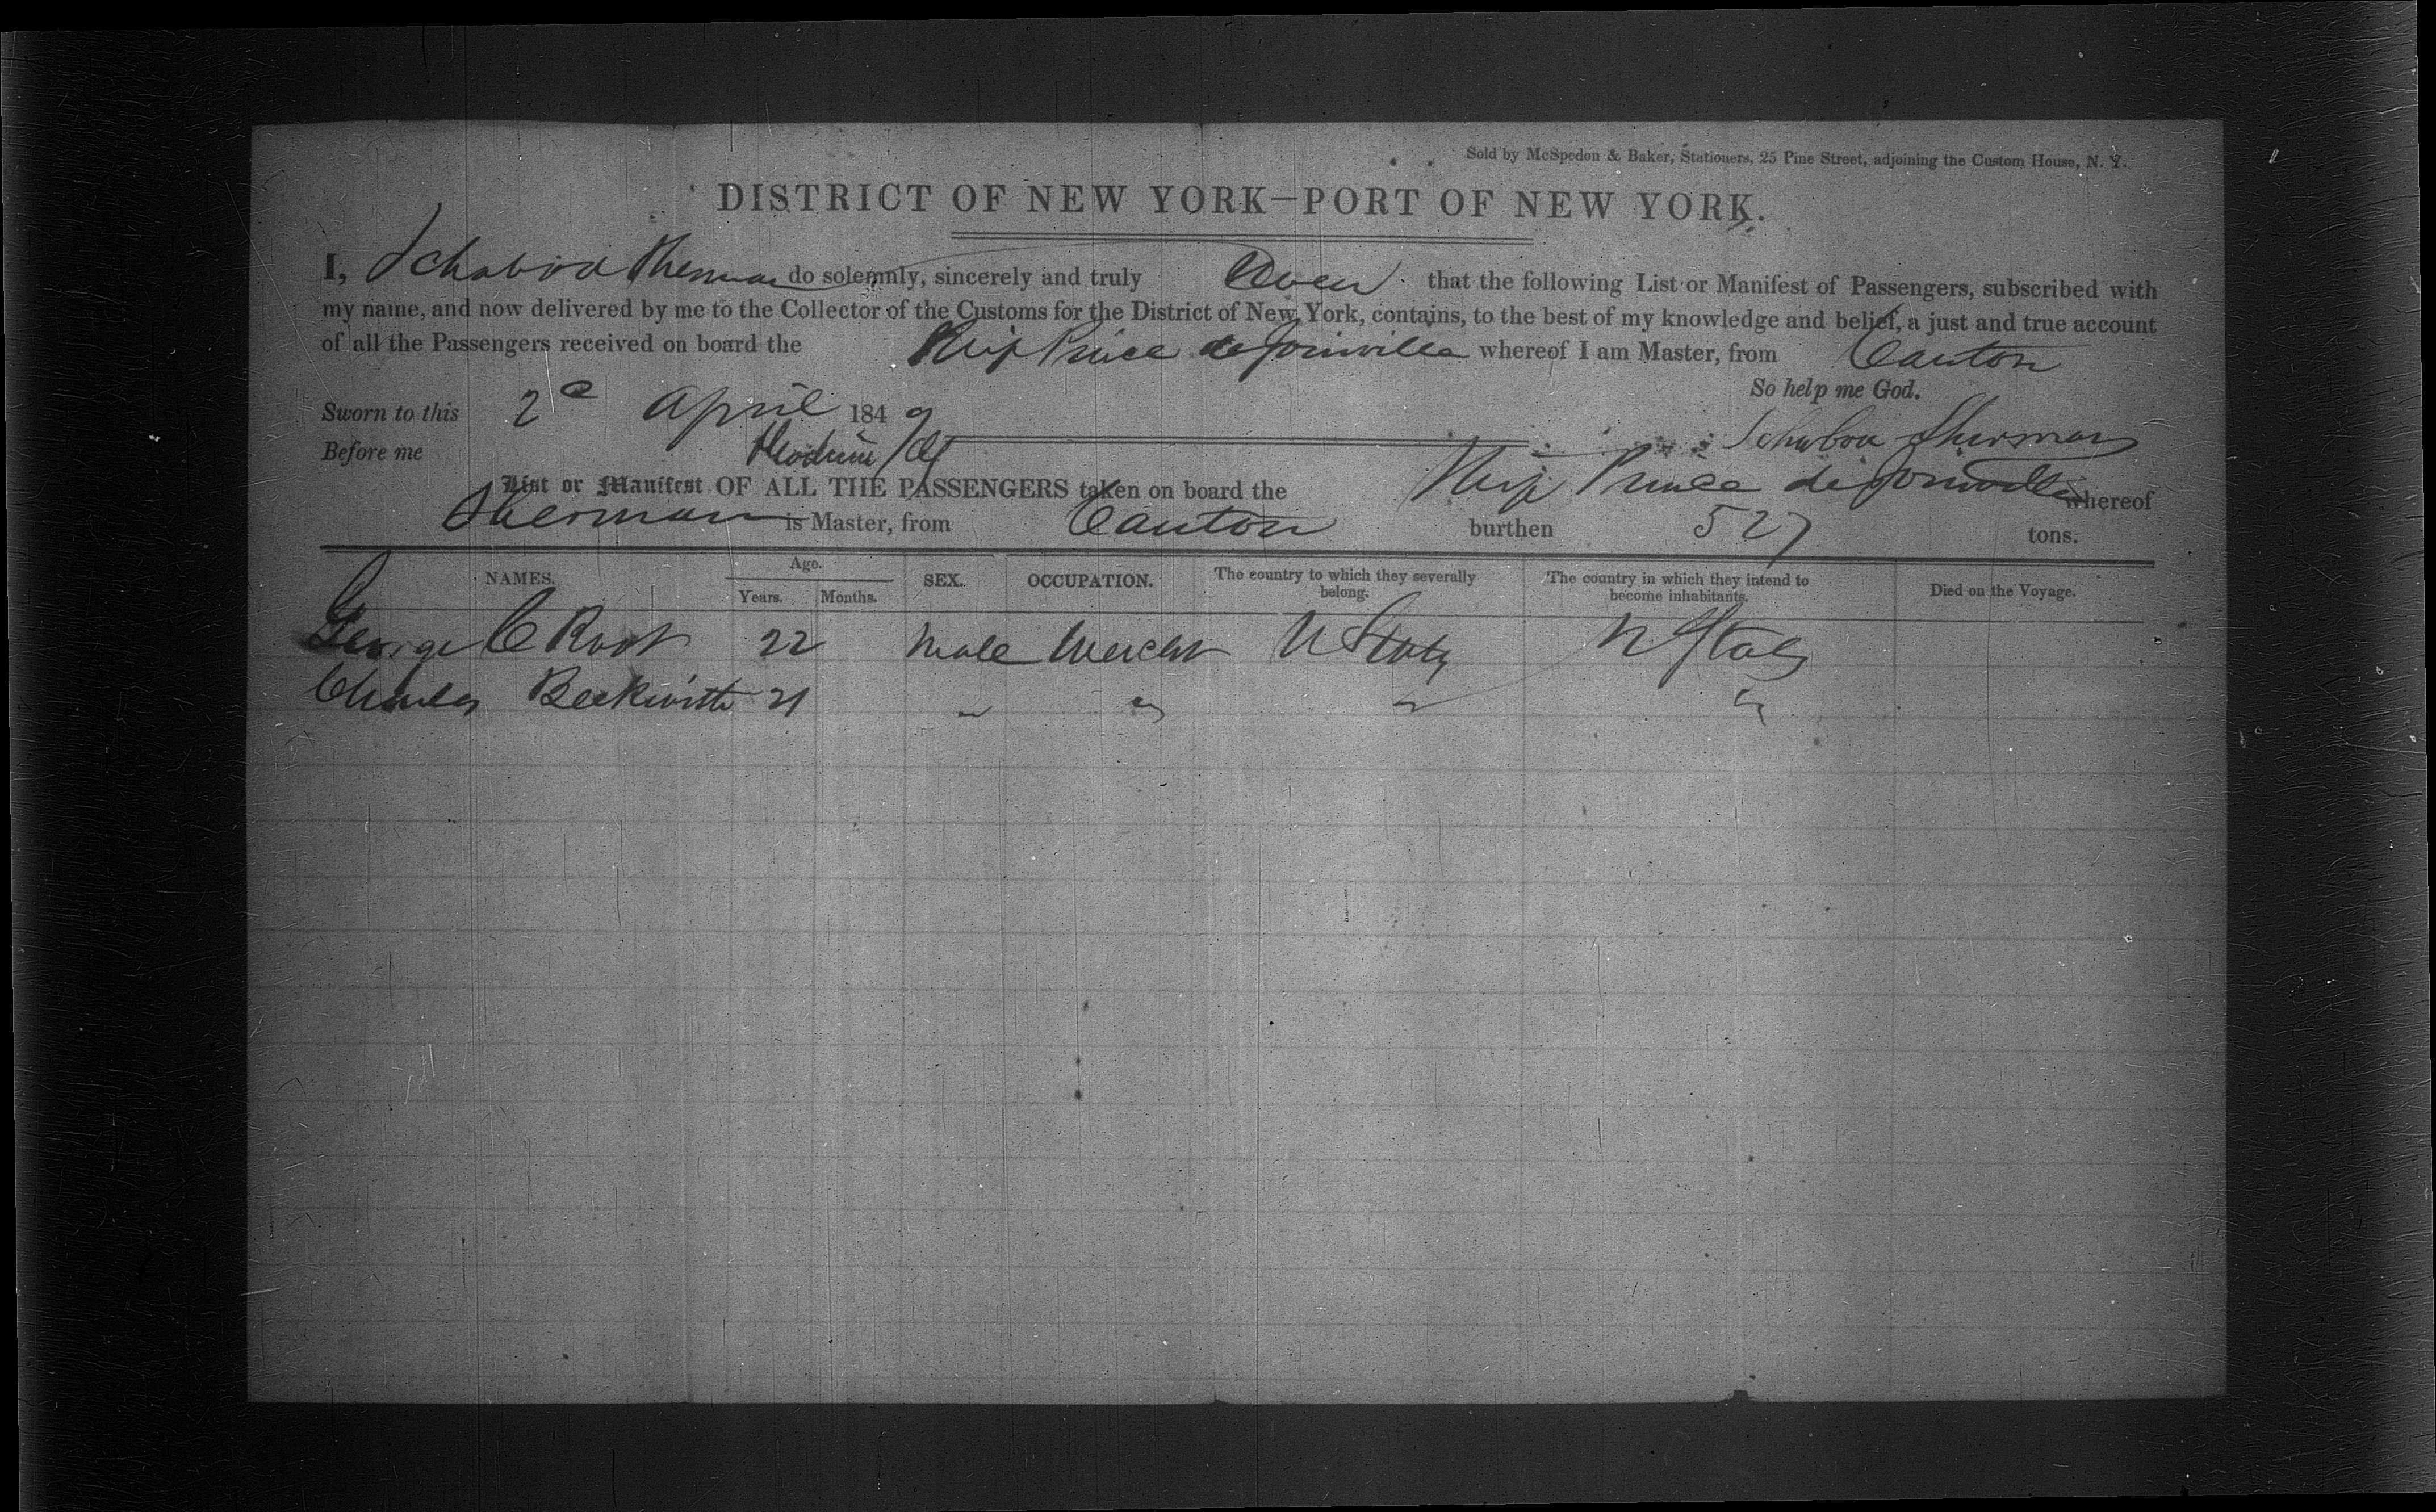 Sold by McSpedon & Baker, Stationers, 25 Pine Street, adjoining the Custom House, N. Y.
DISTRICT OF NEW YORK—PORT OF NEW YORK.
I, Ichabod Sherman do solemnly, sincerely and truly Swear that the following List or Manifest of Passengers, subscribed with
my name, and now delivered by me to the Collector of the Customs for the District of New York, contains, to the best of my knowledge and belief, a just and true account
of all the Passengers received on board the Ship Prince de Joinville whereof I am Master, from Canton
So help me God.
Sworn to this 2d April 1849
Ichabod Sherman
Before me
List or Manifest OF ALL THE PASSENGERS taken on board the Ship Prince de Joinville whereof
Sherman is Master, from Canton burthen 527 tons.
NAMES. Age. Years. Months. SEX. OCCUPATION. The country to which they severally belong. The country in which they intend to become inhabitants. Died on the Voyage.
George C Root 22 Male Mercht U States U States
Charles Beckwith 21 " " " "